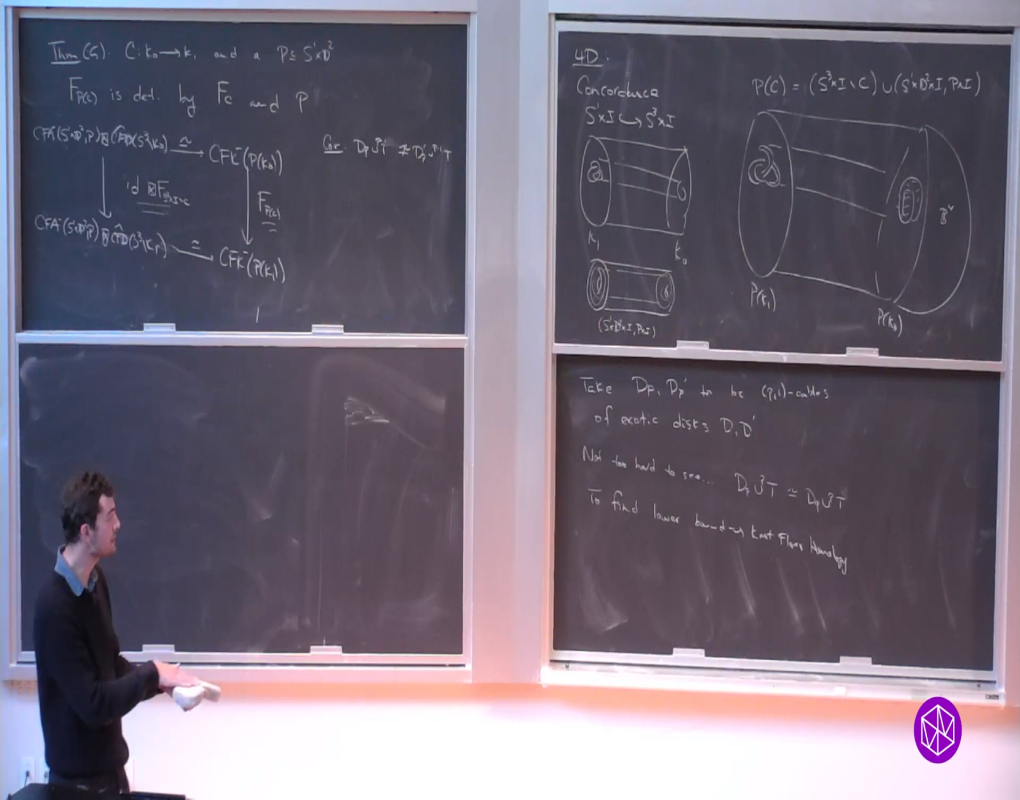 Thm (G): C: K₀ → K₁ and a P ⊆ S¹×D²
F_{P(C)} is det. by F_C and P
CFA⁻(S¹×D²,P) ⊠ CFD(S³\K₀) ≃ → CFK⁻(P(K₀))
id ⊠ F
F_{P(C)}
CFA⁻(S¹×D²,P) ⊠ CFD(S³\K₁) ≃ → CFK⁻(P(K₁))
Cor:
4D:
Concordance
S¹×I ↪ S³×I
K₁ K₀
(S¹×D²×I, P×I)
P(C) = (S³×I \ C) ∪ (S¹×D²×I, P×I)
B⁴
P(K₁)
P(K₀)
Take Dp, Dp' to be (p,1)-cables
of exotic disks D, D'
Not too hard to see...
To find lower bound us Knot Floer Homology